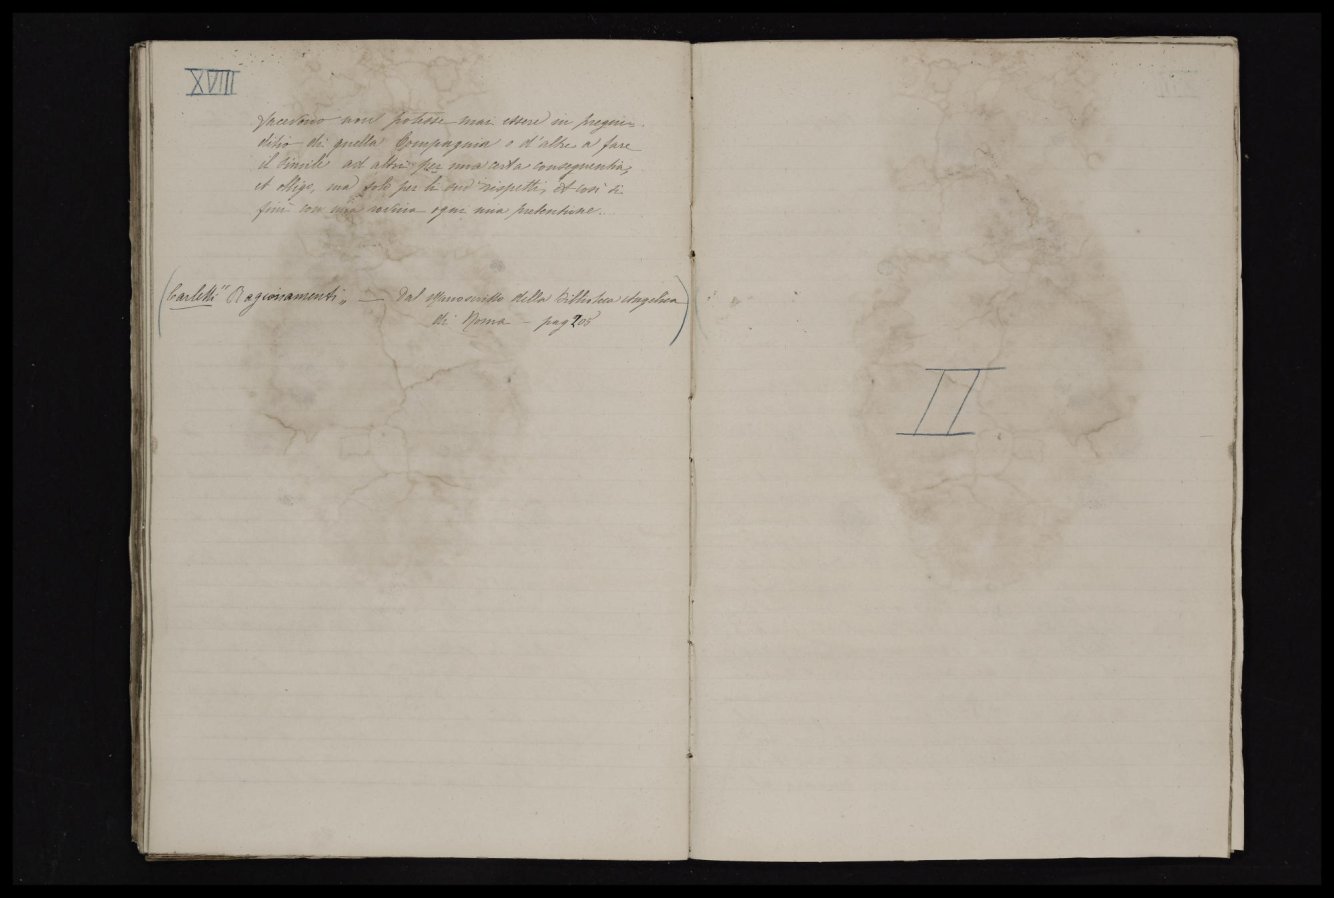 XVIII
facevano non potesse mai essere in pregiu-
ditio di quella Compagnia o d'altre a fare
il simile ad altri per una certa consequentia,
et obligo, ma solo per li sud.i rispetti, et così si
finì con mia rovina ogni mia pretentione.
(Carletti "Ragionamenti" — Dal Manoscritto della Biblioteca Angelica
di Roma - pag 205)
II